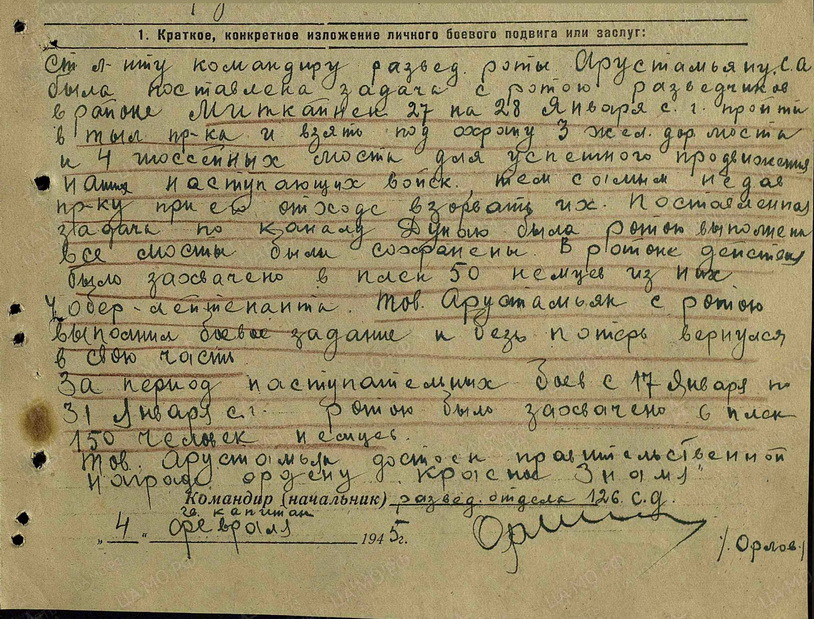 1. Краткое, конкретное изложение личного боевого подвига или заслуг:
Ст л-нту командиру развед. роты Арустамьяну С.А
была поставлена задача с ротою разведчиков
в районе 27 на 28 Января с.г. пройти
в тыл пр-ка и взять под охрану 3 жел. дор моста
и 4 шоссейных моста для успешного продвижения
наших наступающих войск. тем самым не дав
пр-ку при его отходе взорвать их. Поставленная
задача по каналу была ротою выполнена
все мосты были сохранены. В районе действия
было захвачено в плен 50 немцев из них
4 обер-лейтенанта. Тов. Арустамьян с ротою
выполнил боевое задание и безь потерь вернулся
в свою часть.
За период наступательных боев с 17 Января по
31 Января с.г. ротою было захвачено в плен
150 человек немцев.
Тов. Арустамьян достоен правительственной
награде ордену "Красное Знамя"
Командир (начальник) развед. отдела 126 с.д.
гв. капитан
„4" февраля 1945 г.
/Орлов/